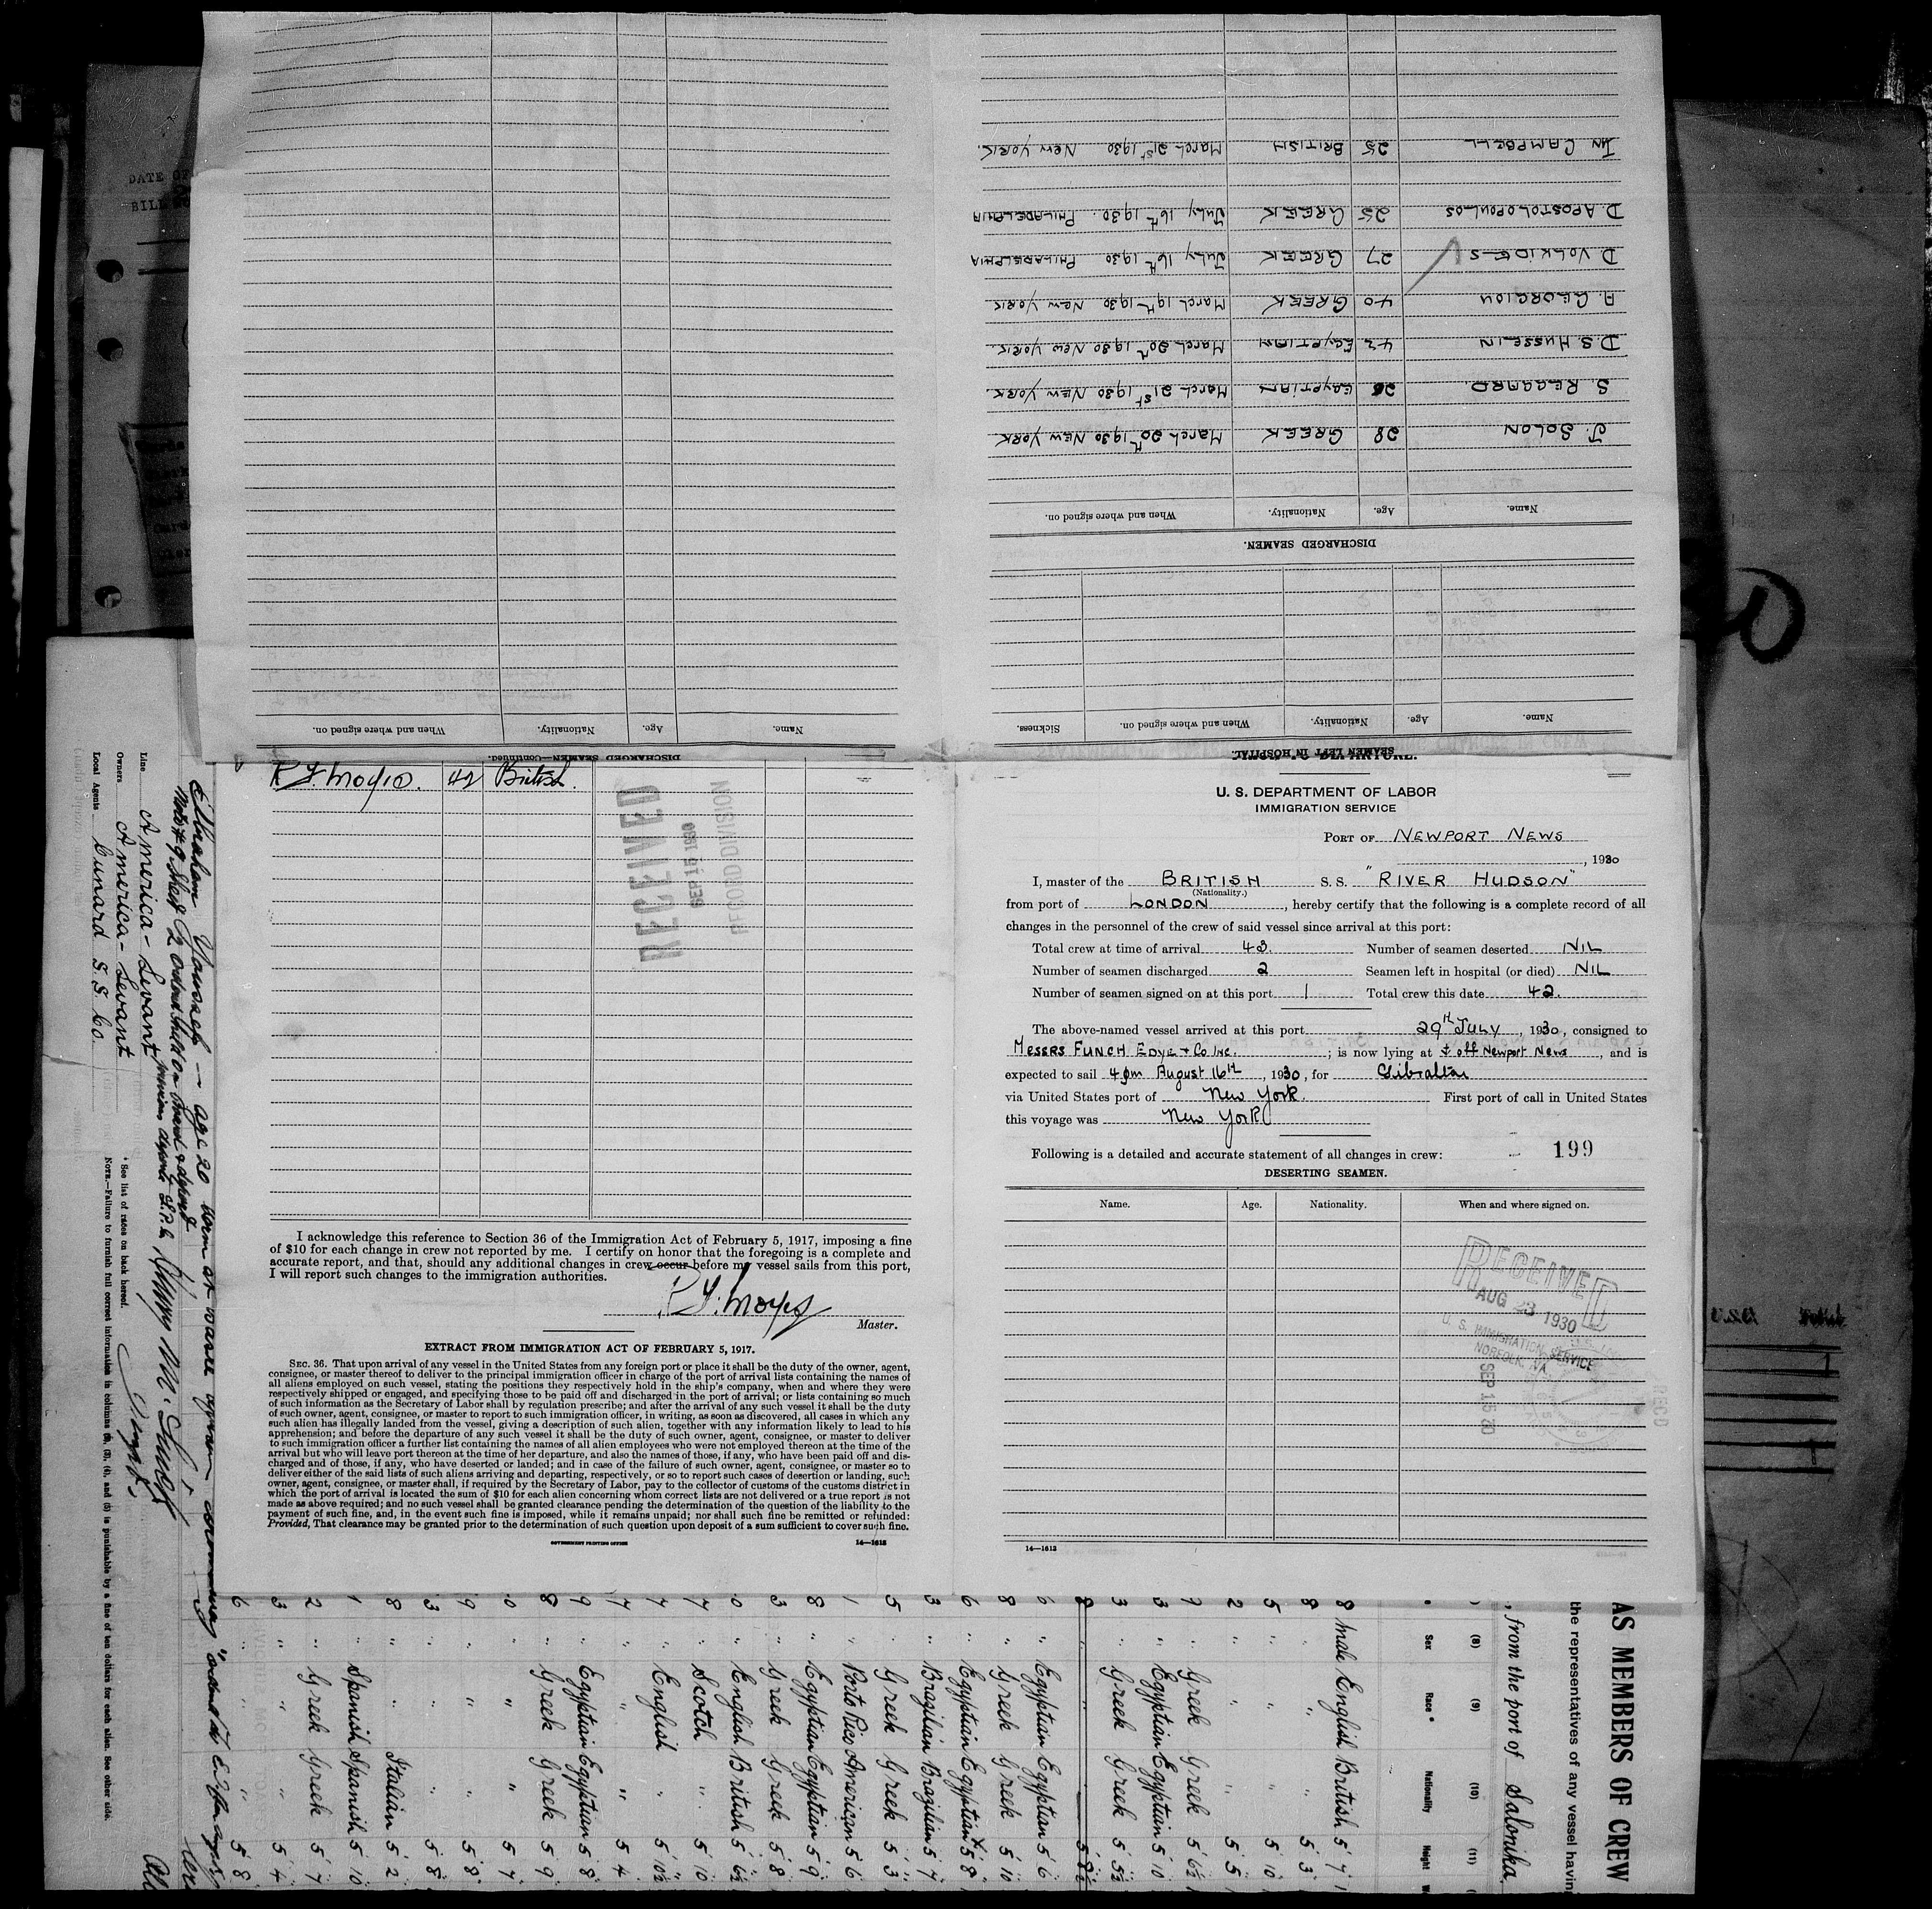 DATE OF
BILL
SEAMEN LEFT IN HOSPITAL.
Name. Age. Nationality. When and where signed on. Sickness.
DISCHARGED SEAMEN.
Name. Age. Nationality. When and where signed on.
J. SOLON 28 GREEK March 20th 1930 NEW YORK
S. RAGGARD. EGYPTIAN March 21st 1930 NEW YORK.
D.S. HUSSEIN 42 EGYPTIAN March 20th 1930 NEW YORK.
A. GEORGIOU 40 GREEK March 19th 1930 NEW YORK
D VOLKIDES 27 GREEK July 16th 1930 PHILADELPHIA
D. APOSTOLOPOULOS 25 GREEK July 16th 1930. PHILADELPHIA
JN CAMPBELL 25 BRITISH March 21st 1930 NEW YORK.
DISCHARGED SEAMEN—Continued.
Name. Age. Nationality. When and where signed on.
42 British.
RECEIVED
SEP 15 1930
RECORD DIVISION
I acknowledge this reference to Section 36 of the Immigration Act of February 5, 1917, imposing a fine
of $10 for each change in crew not reported by me. I certify on honor that the foregoing is a complete and
accurate report, and that, should any additional changes in crew occur before my vessel sails from this port,
I will report such changes to the immigration authorities.
Master.
EXTRACT FROM IMMIGRATION ACT OF FEBRUARY 5, 1917.
SEC. 36. That upon arrival of any vessel in the United States from any foreign port or place it shall be the duty of the owner, agent,
consignee, or master thereof to deliver to the principal immigration officer in charge of the port of arrival lists containing the names of
all aliens employed on such vessel, stating the positions they respectively hold in the ship's company, when and where they were
respectively shipped or engaged, and specifying those to be paid off and discharged in the port of arrival; or lists containing so much
of such information as the Secretary of Labor shall by regulation prescribe; and after the arrival of any such vessel it shall be the duty
of such owner, agent, consignee, or master to report to such immigration officer, in writing, as soon as discovered, all cases in which any
such alien has illegally landed from the vessel, giving a description of such alien, together with any information likely to lead to his
apprehension; and before the departure of any such vessel it shall be the duty of such owner, agent, consignee, or master to deliver
to such immigration officer a further list containing the names of all alien employees who were not employed thereon at the time of the
arrival but who will leave port thereon at the time of her departure, and also the names of those, if any, who have been paid off and dis-
charged and of those, if any, who have deserted or landed; and in case of the failure of such owner, agent, consignee, or master so to
deliver either of the said lists of such aliens arriving and departing, respectively, or so to report such cases of desertion or landing, such
owner, agent, consignee, or master shall, if required by the Secretary of Labor, pay to the collector of customs of the customs district in
which the port of arrival is located the sum of $10 for each alien concerning whom correct lists are not delivered or a true report is not
made as above required; and no such vessel shall be granted clearance pending the determination of the question of the liability to the
payment of such fine, and, in the event such fine is imposed, while it remains unpaid; nor shall such fine be remitted or refunded:
Provided, That clearance may be granted prior to the determination of such question upon deposit of a sum sufficient to cover such fine.
GOVERNMENT PRINTING OFFICE 14—1613
U. S. DEPARTMENT OF LABOR
IMMIGRATION SERVICE
PORT OF NEWPORT NEWS
, 1930
I, master of the BRITISH S. S. "RIVER HUDSON"
(Nationality.)
from port of LONDON, hereby certify that the following is a complete record of all
changes in the personnel of the crew of said vessel since arrival at this port:
Total crew at time of arrival 43. Number of seamen deserted NIL
Number of seamen discharged 2 Seamen left in hospital (or died) NIL
Number of seamen signed on at this port 1 Total crew this date 42.
The above-named vessel arrived at this port 29th JULY, 1930, consigned to
MESSRS FUNCH EDYE & Co INC.; is now lying at off Newport News, and is
expected to sail 4pm August 16th, 1930, for Gibraltar
via United States port of New York. First port of call in United States
this voyage was New York
Following is a detailed and accurate statement of all changes in crew: 199
DESERTING SEAMEN.
Name. Age. Nationality. When and where signed on.
RECEIVED
AUG 23 1930
U. S. IMMIGRATION SERVICE
NORFOLK, VA.
SEP 15 30
REC'D
14—1613
Line America-Levant
Owners America-Levant
Local Agents Cunard S.S. Co.
* See list of races on back hereof.
NOTE.—Failure to furnish full correct information in columns (2), (3), (4), and (5) is punishable by a fine of ten dollars for each alien. See other side.
AS MEMBERS OF CREW
the representatives of any vessel having
, from the port of Salonika
(8) (9) (10) (11)
Sex Race * Nationality Height
8 male English British 5 7
8 " " " 5 3
5 " " " 5 10
2 " " " 5 5
9 " Greek Greek 5 6½
3 " Egyptian Egyptian 5 10
3 " Greek Greek 5 5½
6 " Egyptian Egyptian 5 6
8 " Greek Greek 5 10
6 " Egyptian Egyptian 5 8
3 " Brazilian Brazilian 5 7
5 " Greek Greek 5 3
1 " Porto Rico American 5 6
8 " Egyptian Egyptian 5 9
3 " Greek Greek 5 8
0 " English British 5 6½
7 " Scotch " 5 10
7 " English " 5 10½
7 " " " 5 4
9 " Egyptian Egyptian 5 8
8 " Greek Greek 5 9
0 " " " 5 7
9 " " " 5 8
3 " " " 5 8
8 " " Italian 5 2
1 " Spanish Spanish 5 10
2 " Greek Greek 5 7
3 " " " 5 4
6 " " " 5 8